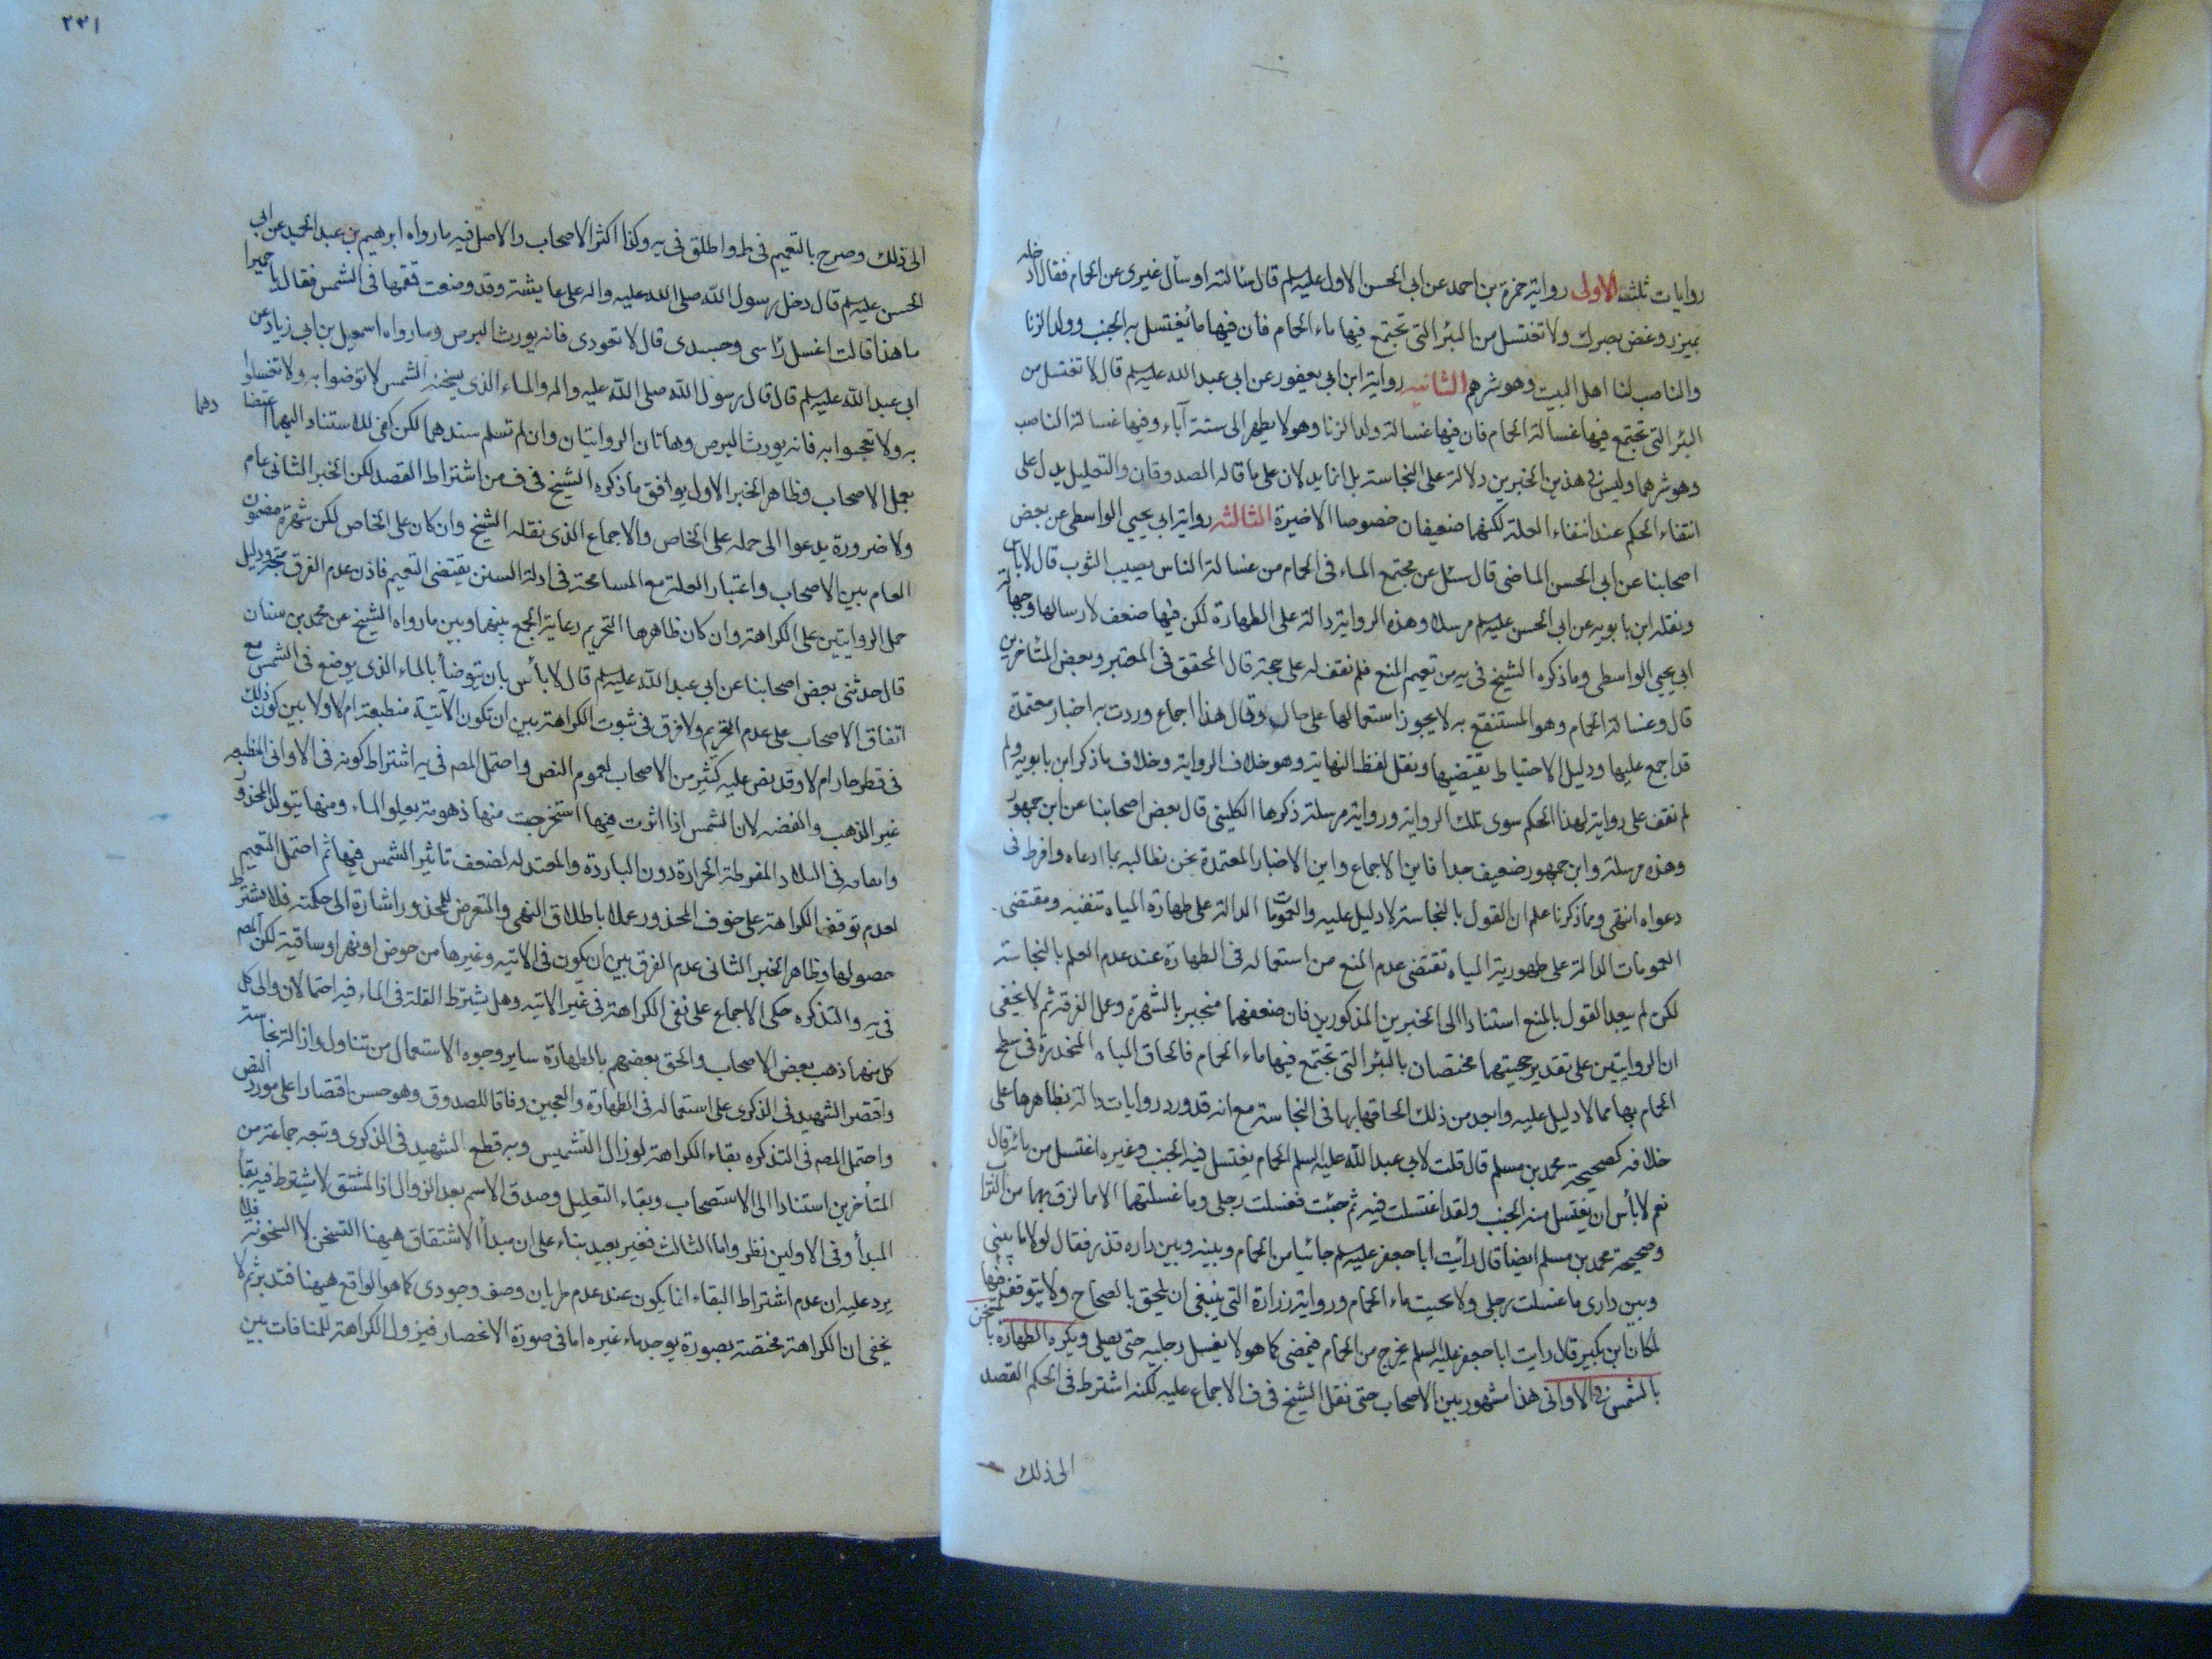 روايات ثلثه الاولى رواية حمزة بن احمد عن ابي الحسن الاول عليه سلم قال سألته اوسأل غيري عن الحمام فقال ادخله
بميزر وغض بصرك ولا تغتسل من البئر التي تجتمع فيها ماء الحمام فان فيها ما يغتسل به الجنب وولد الزنا
والناصب لنا اهل البيت وهو شرهم الثانيه رواية ابن ابي يعفور عن ابي عبد الله عليه سلم قال لا تغتسل من
البئر التي تجتمع فيها غسالة الحمام فان فيها غسالة ولد الزنا وهو لا يطهر الى ستة آباء وفيها غسالة الناصب
وهو شرهما وليس في هذين الخبرين دلالة على النجاسة بل انما يدلان على ما قاله الصدوقان والتعليل يدل على
انتفاء الحكم عند انتفاء العلة لكنهما ضعيفان خصوصا الاخيرة الثالثه رواية ابي يحيى الواسطي عن بعض
اصحابنا عن ابي الحسن الماضي قال سئل عن مجتمع الماء في الحمام من غسالة الناس يصيب الثوب قال لا بأس
ونقله ابن بابويه عن ابي الحسن عليه سلم مرسلا وهذه الرواية دالة على الطهارة لكن فيها ضعف لارسالها وجهالة
ابي يحيى الواسطي وما ذكره الشيخ في يه من تعميم المنع فلم نقف له على حجة قال المحقق في المعتبر وبعض المتأخرين
قال وغسالة الحمام وهو المستنقع به لا يجوز استعمالها على حال وقال هذا اجماع وردت به اخبار معتمدة
قد اجمع عليها ودليل الاحتياط يقتضيها ونقل لفظ النهاية وهو خلاف الرواية وخلاف ما ذكر ابن بابويه ولم
لم نقف على رواية لهذا الحكم سوى تلك الرواية ورواية مرسلة ذكرها الكليني قال بعض اصحابنا عن ابن جمهور
وهذه مرسلة وابن جمهور ضعيف جدا فاين الاجماع واين الاخبار المعتمدة نحن نطالبه بما ادعاه وافرط في
دعواه انتهى ومما ذكرنا علم ان القول بالنجاسة لا دليل عليه والعمومات الدالة على طهارة المياه تنفيه ومقتضى
العمومات الدالة على طهورية المياه تقتضى عدم المنع من استعماله في الطهارة عند عدم العلم بالنجاسة
لكن لم يبعد القول بالمنع استنادا الى الخبرين المذكورين فان ضعفهما منجبر بالشهرة وعمل الفرقة ثم لا يخفى
ان الروايتين على تقدير حجيتهما مختصان بالبئر التي تجتمع فيها ماء الحمام فالحاق المياه المنحدرة في سطح
الحمام بها مما لا دليل عليه وابعد من ذلك الحاقها بها في النجاسة مع انه قد ورد روايات دالة بظاهرها على
خلافه كصحيحة محمد بن مسلم قال قلت لابي عبد الله عليه السلم الحمام يغتسل فيه الجنب وغيره اغتسل من مائه قال
نعم لا بأس ان يغتسل منه الجنب ولقد اغتسلت فيه ثم جئت فغسلت رجلي وما غسلتهما الا مما لزق بهما من التراب
وصحيحة محمد بن مسلم ايضا قال رأيت ابا جعفر عليه سلم جائيا من الحمام وبينه وبين داره قذر فقال لولا ما بيني
وبين داري ما غسلت رجلي ولا نحيت ماء الحمام ورواية زرارة التي ينبغي ان يلحق بالصحاح ولا يتوقف فيها
لمكان ابن بكير قال رايت ابا جعفر عليه السلم يخرج من الحمام فيمضي كما هو لا يغسل رجليه حتى يصلي ويكره الطهارة بالمتسخن
بالشمس في الاواني هذا مشهور بين الاصحاب حتى نقل الشيخ في ف الاجماع عليه لكنه اشترط في الحكم القصد
الى ذلك
٢٢١
الى ذلك وصرح بالتعميم في ط واطلق في يه وكذا اكثر الاصحاب والاصل فيه ما رواه ابرهيم بن عبد الحميد عن ابي
الحسن عليه سلم قال دخل رسول الله صلى الله عليه واله على عايشة وقد وضعت قمقمها في الشمس فقال يا حميرا
ما هذا قالت اغسل رأسى وجسدى قال لا تعودى فانه يورث البرص وما رواه اسمعيل بن ابي زياد عن
ابي عبد الله عليه سلم قال قال رسول الله صلى الله عليه واله والماء الذي يسخنه الشمس لا توضوا به ولا تغسلوا
به ولا تعجنوا به فانه يورث البرص وهاتان الروايتان وان لم تسلم سندهما لكن كفى للاستناد اليهما
بعمل الاصحاب وظاهر الخبر الاول يوافق ما ذكره الشيخ في ف من اشتراط القصد لكن الخبر الثاني عام
ولا ضرورة يدعوا الى حمله على الخاص والاجماع الذي نقله الشيخ وان كان على الخاص لكن شهرة مضمون
العام بين الاصحاب واعتبار العلة مع المسامحة في ادلة السنن يقتضى التعميم فاذن عدم الفرق متجه ودليل
حمل الروايتين على الكراهة وان كان ظاهرها التحريم رعاية الجمع بينهما وبين ما رواه الشيخ عن محمد بن سنان
قال حدثني بعض اصحابنا عن ابي عبد الله عليه سلم قال لا بأس بان يتوضأ بالماء الذي يوضع في الشمس مع
اتفاق الاصحاب على عدم التحريم ولا فرق في ثبوت الكراهة بين ان تكون الآنية منطبعة ام لا ولا بين كون ذلك
في قطر حار ام لا وقد نص عليه كثير من الاصحاب لعموم النص واحتمل المص في يه اشتراط كونه في الاواني المنطبعه
غير الذهب والفضه لان الشمس اذا اثرت فيها استخرجت منها زهومة يعلو الماء ومنها يتولد المحذور
وايضا في البلاد المفرطة الحرارة دون الباردة والمعتدله لضعف تاثير الشمس فيها ثم احتمل التعميم
لعدم توقف الكراهة على خوف المحذور عملا باطلاق النهى والتعرض للمحذور اشارة الى حكمته فلا يشترط
حصولها وظاهر الخبر الثاني عدم الفرق بين ان يكون في الانية وغيرها من حوض او نهر او ساقية لكن المص
في يه والتذكره حكى الاجماع على نفى الكراهة في غير الانية وهل يشترط القلة في الماء فيه احتمالان والى كل
كل منهما ذهب بعض الاصحاب والحق بعضهم بالطهارة ساير وجوه الاستعمال من تناول وازالة نجاسة
واقتصر الشهيد في الذكرى على استعماله في الطهارة والعجين وفاقا للصدوق وهو حسن اقتصارا على مورد النص
واحتمل المص في التذكره بقاء الكراهة لو زال التشميس وبه قطع الشهيد في الذكرى وتبعه جماعة من
المتأخرين استنادا الى الاستصحاب وبقاء التعليل وصدق الاسم بعد الزوال اذ المشتق لا يشترط فيه بقا
المبدأ وفي الاولين نظر واما الثالث فغير بعيد بناء على ان مبدأ الاشتقاق هيهنا التسخن لا السخونة فلا
يرد عليه ان عدم اشتراط البقاء انما يكون عند عدم طريان وصف وجودى كما هو الواقع هيهنا فتدبر ثم لا
يخفى ان الكراهة مختصة بصورة يوجد ماء غيره اما في صورة الانحصار فيزول الكراهة للمنافات بين